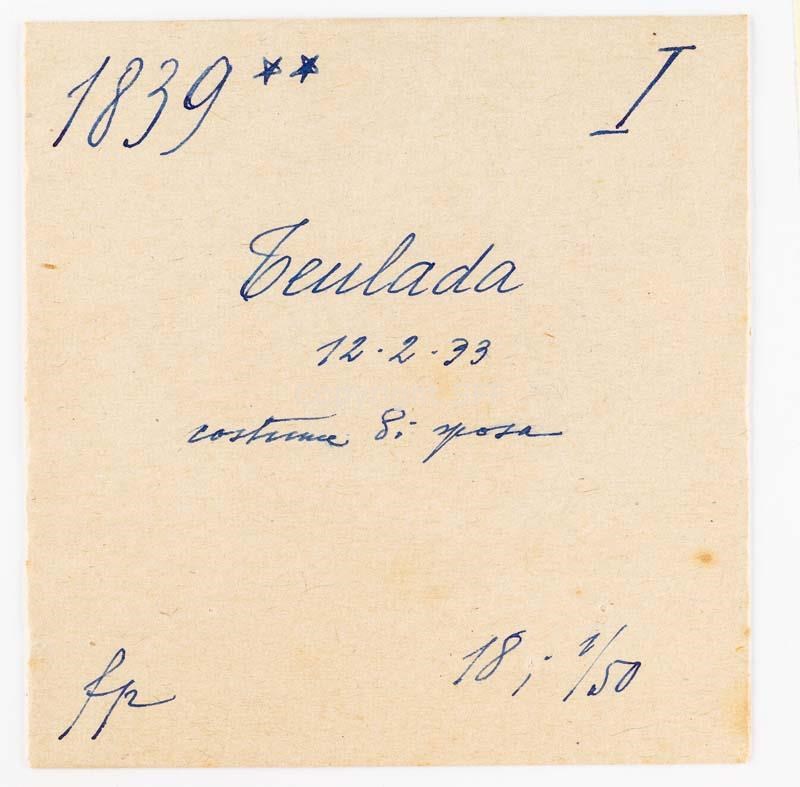 1839 ** I
Teulada
12.2.33
costume di sposa
fp
18; 1/50